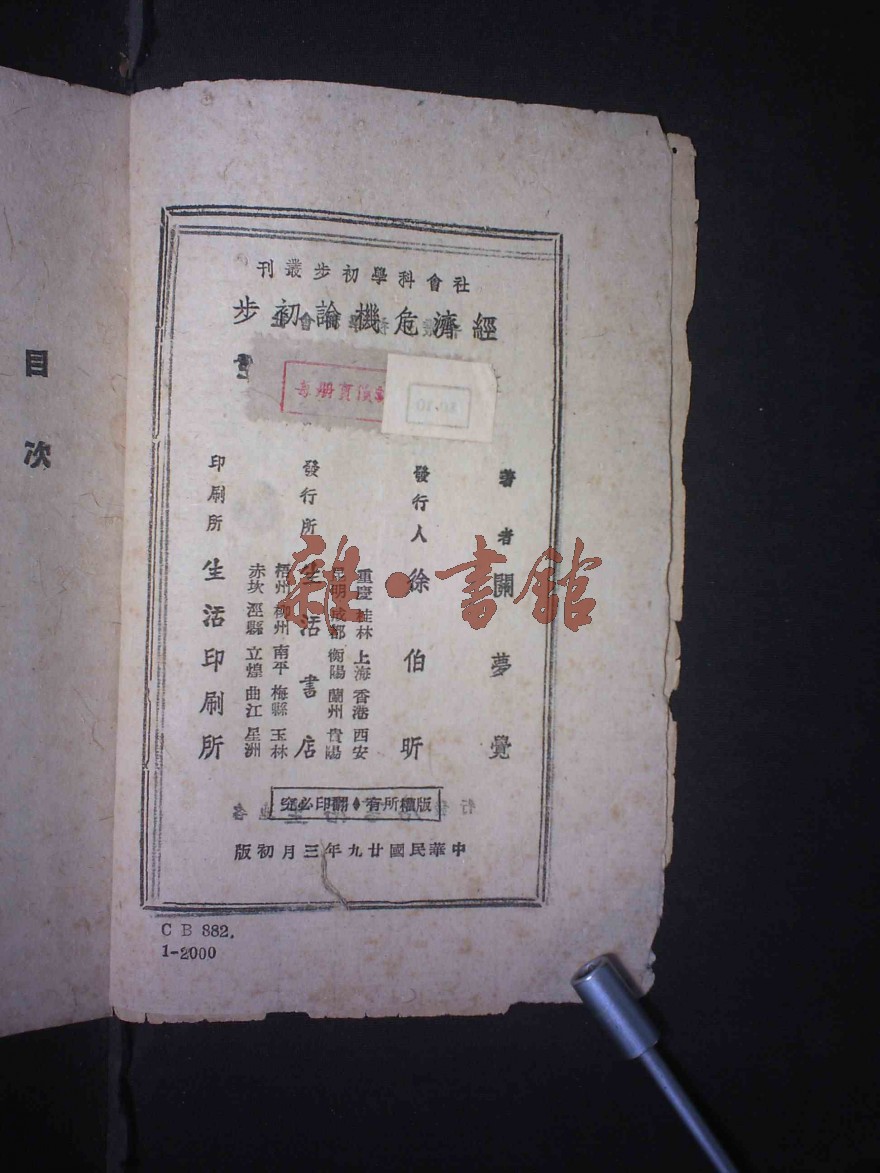 社會科學初步叢刊
經濟危機論初步
每册實價
著者 關夢覺
發行人 徐伯昕
發行所 生活書店
重慶 桂林 上海 香港 西安
昆明 成都 衡陽 蘭州 貴陽
梧州 柳州 南平 梅縣 玉林
赤坎 涇縣 立煌 曲江 星洲
印刷所 生活印刷所
版權所有♦翻印必究
中華民國廿九年三月初版
C B 882.
1-2000
目次
雜·書館